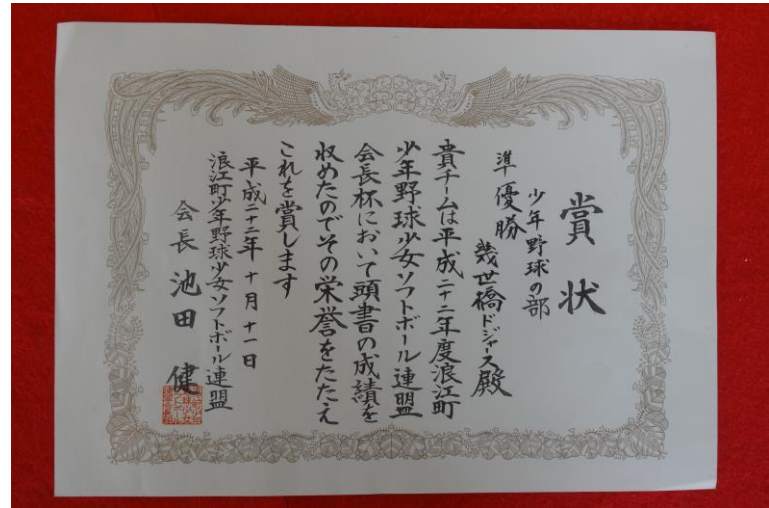 賞状
少年野球の部
準優勝
幾世橋ドジャース殿
貴チームは平成二十二年度浪江町
少年野球少女ソフトボール連盟
会長杯において頭書の成績を
収めたのでその栄誉をたたえ
これを賞します
平成二十二年十月十一日
浪江町少年野球少女ソフトボール連盟
会長 池田 健